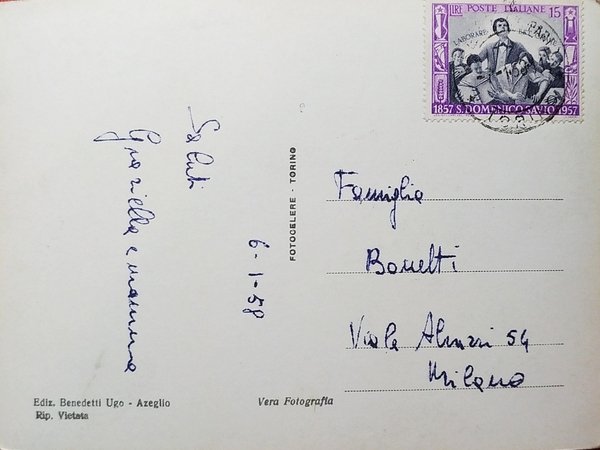 LIRE POSTE ITALIANE 15
LABORARE
1857 S. DOMENICO SAVIO 1957
Saluti
Graziella e mamma
6-1-58
FOTOCELERE - TORINO
Famiglia
Bonetti
Viale 54
Milano
Ediz. Benedetti Ugo - Azeglio
Rip. Vietata
Vera Fotografia